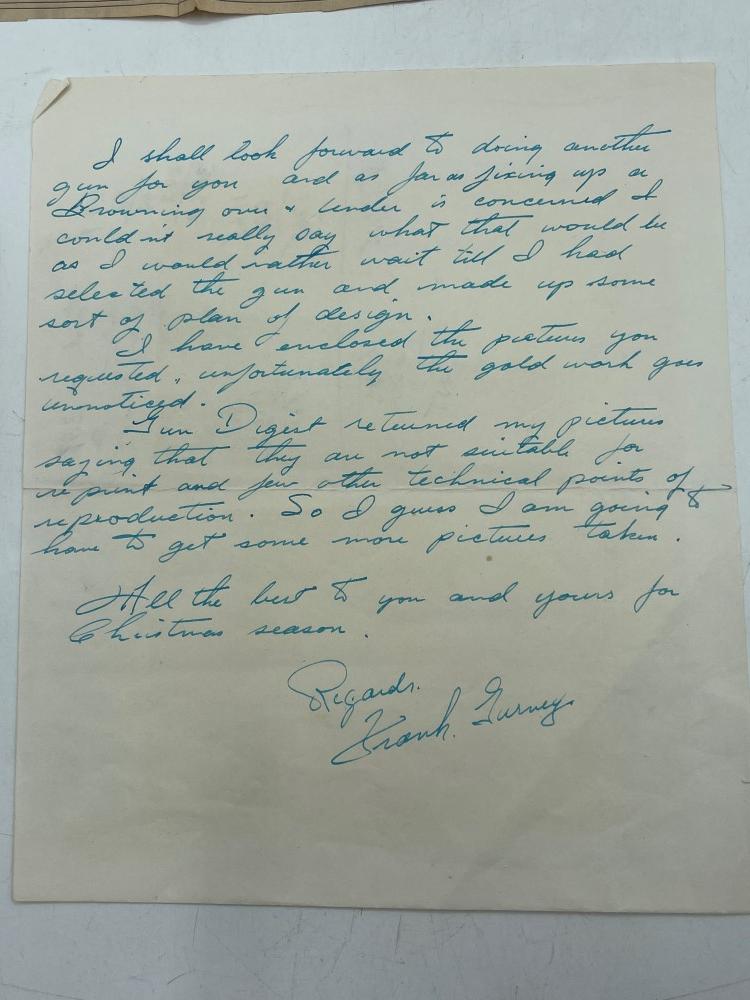 I shall look forward to doing another
gun for you and as far as fixing up a
Browning over & under is concerned I
couldn't really say what that would be
as I would rather wait till I had
selected the gun and made up some
sort of plan of design.
I have enclosed the pictures you
requested, unfortunately the gold work goes
unnoticed.
Gun Digest returned my pictures
saying that they are not suitable for
reprint and few other technical points of
reproduction. So I guess I am going to
have to get some more pictures taken.
All the best to you and yours for
Christmas season.
Regards.
Frank. Gurney.